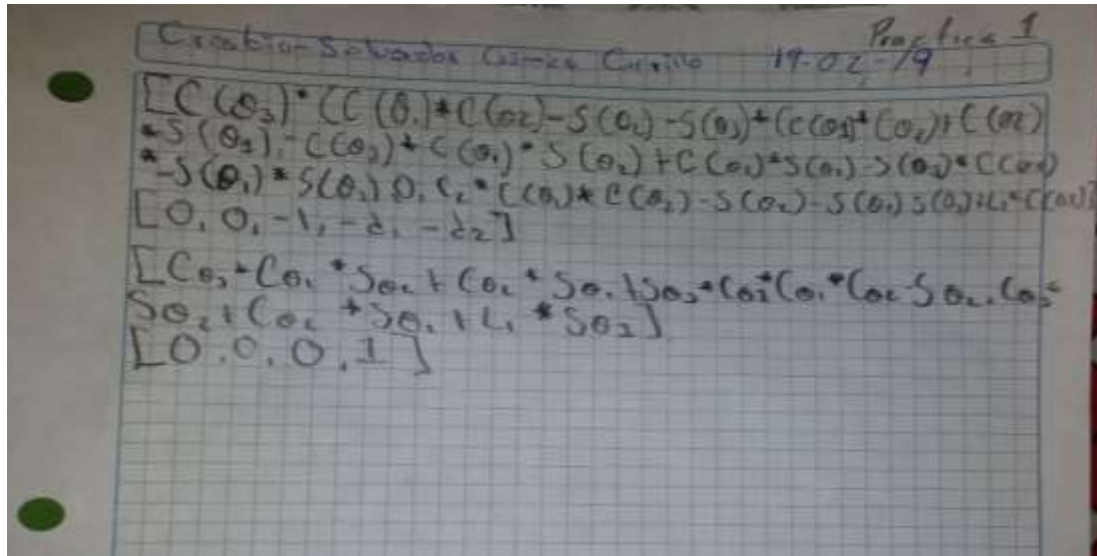 Practica 1
Salvador Gomez 19-02-19
[C(θ3)*(C(θ1)*C(θ2)-S(θ2)-S(θ3)*(C(θ1)*C(θ2)+C(θ2)
*S(θ1),-C(θ3)*C(θ1)*S(θ2)+C(θ2)*S(θ1)-S(θ3)*C(θ1)
*-S(θ1)*S(θ2) 0, L2*C(θ1)*C(θ2)-S(θ2)-S(θ1) S(θ2)+L1*C(θ1)]
[0, 0, -1, -d1 -d2]
[Cθ3*Cθ1*Sθ2+Cθ2*Sθ1+Sθ3*Cθ3*Cθ1*Cθ2-Sθ2, Cθ3*
Sθ2+Cθ2*Sθ1+L1*Sθ2]
[0,0,0,1]